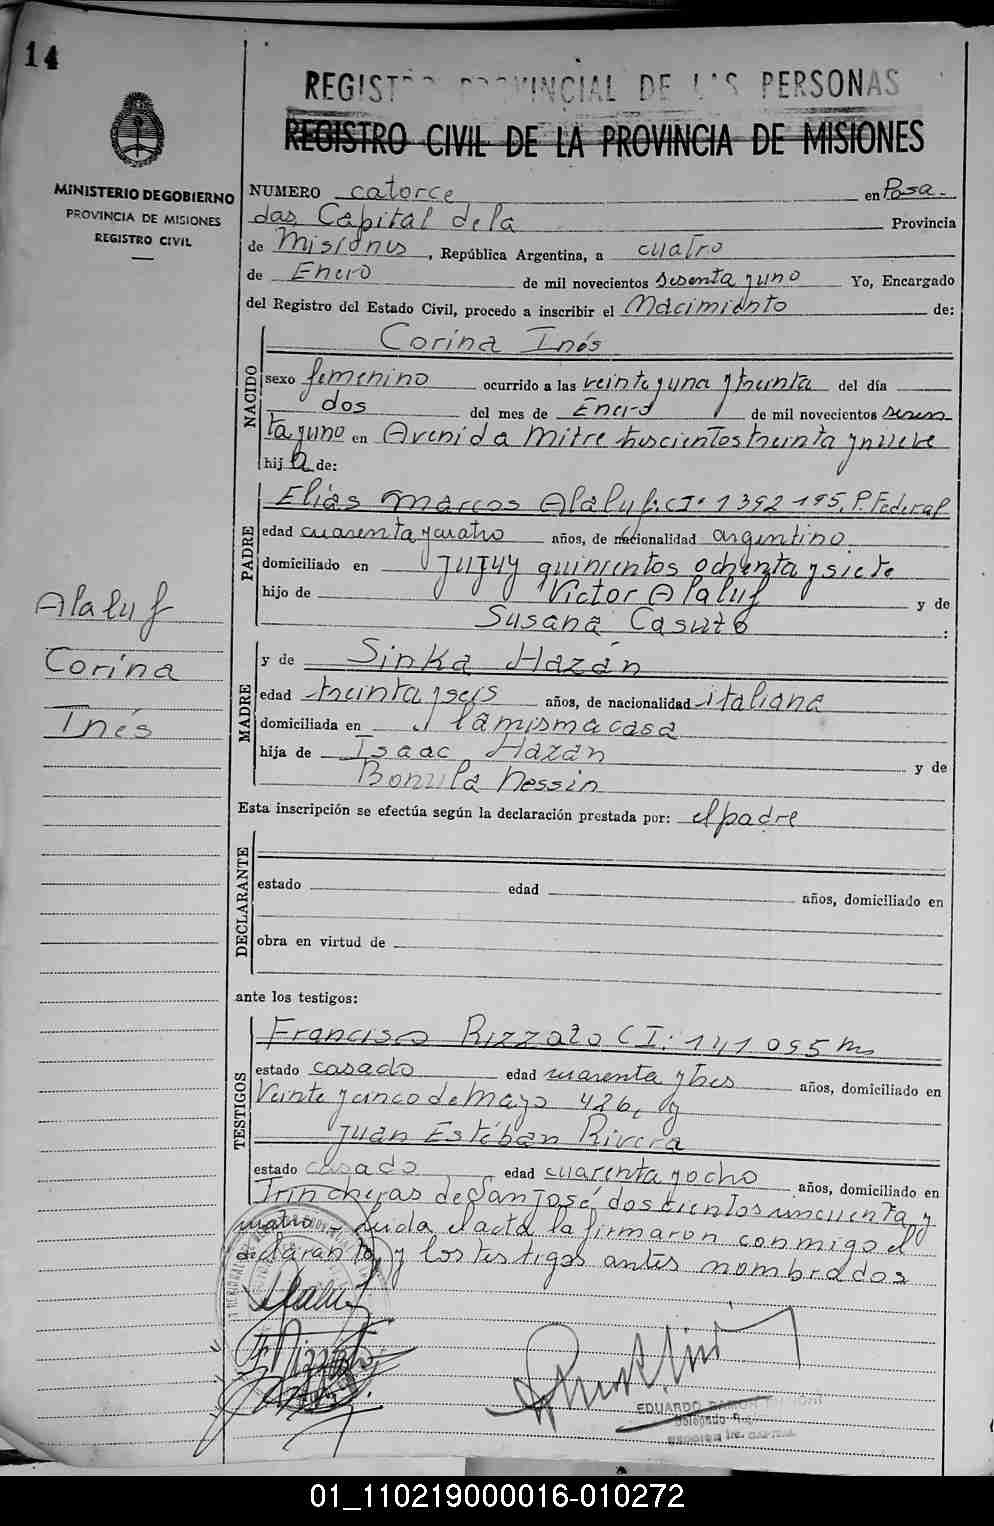 14
REGISTRO PROVINCIAL DE LAS PERSONAS
REGISTRO CIVIL DE LA PROVINCIA DE MISIONES
MINISTERIO DE GOBIERNO
PROVINCIA DE MISIONES
REGISTRO CIVIL
NUMERO catorce en Posa-
das Capital de la Provincia
de Misiones, República Argentina, a cuatro
de Enero de mil novecientos sesenta y uno Yo, Encargado
del Registro del Estado Civil, procedo a inscribir el Nacimiento de:
NACIDO
Corina Inés
sexo femenino ocurrido a las veinte y una y treinta del día
dos del mes de Enero de mil novecientos sesen
ta y uno en Avenida Mitre trescientos treinta y nueve
hij a de:
PADRE
Elías Marcos Alaluf. CI. 1392195. P. Federal
edad cuarenta y cuatro años, de nacionalidad argentino
domiciliado en Jujuy quinientos ochenta y siete
hijo de Victor Alaluf y de
Susana Casuto :
Alaluf
Corina
Inés
MADRE
y de Sinka Hazán
edad treinta y seis años, de nacionalidad italiana
domiciliada en la misma casa
hija de Isaac Hazán y de
Nessin
Esta inscripción se efectúa según la declaración prestada por: el padre
DECLARANTE
estado edad años, domiciliado en
obra en virtud de
ante los testigos:
TESTIGOS
Francisco Rizzato CI: 141095 Ms
estado casado edad cuarenta y tres años, domiciliado en
Veinte y cinco de Mayo 426, y
Juan Estéban Rivera
estado casado edad cuarenta y ocho años, domiciliado en
Trincheras de San José doscientos cincuenta y
cuatro - Leida el acta la firmaron conmigo el
declarante y los testigos antes nombrados
EDUARDO RAMON
Delegado
CAPITAL
01_110219000016-010272